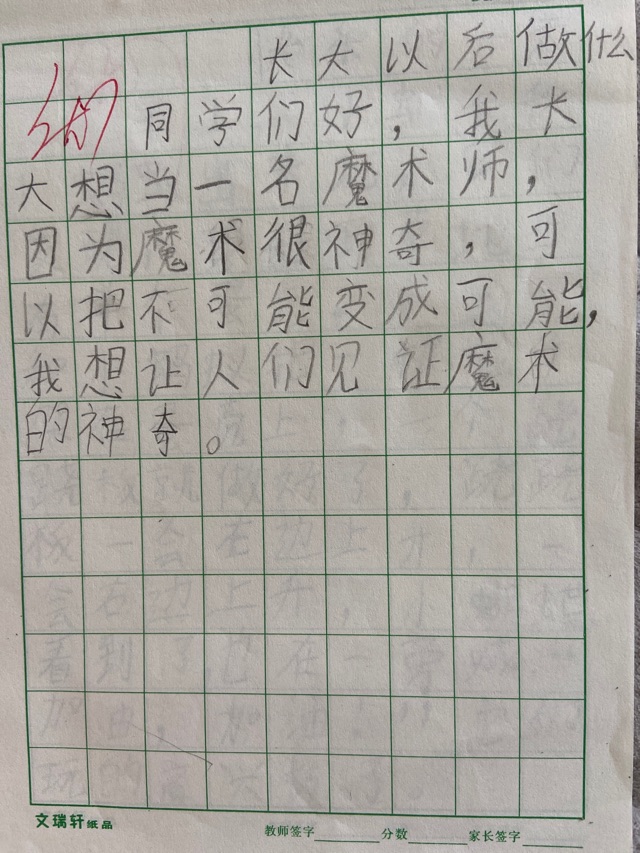 长大以后做什么
同学们好，我长
大想当一名魔术师，
因为魔术很神奇，可
以把不可能变成可能，
我想让人们见证魔术
的神奇。
文瑞轩纸品
教师签字______分数______家长签字______